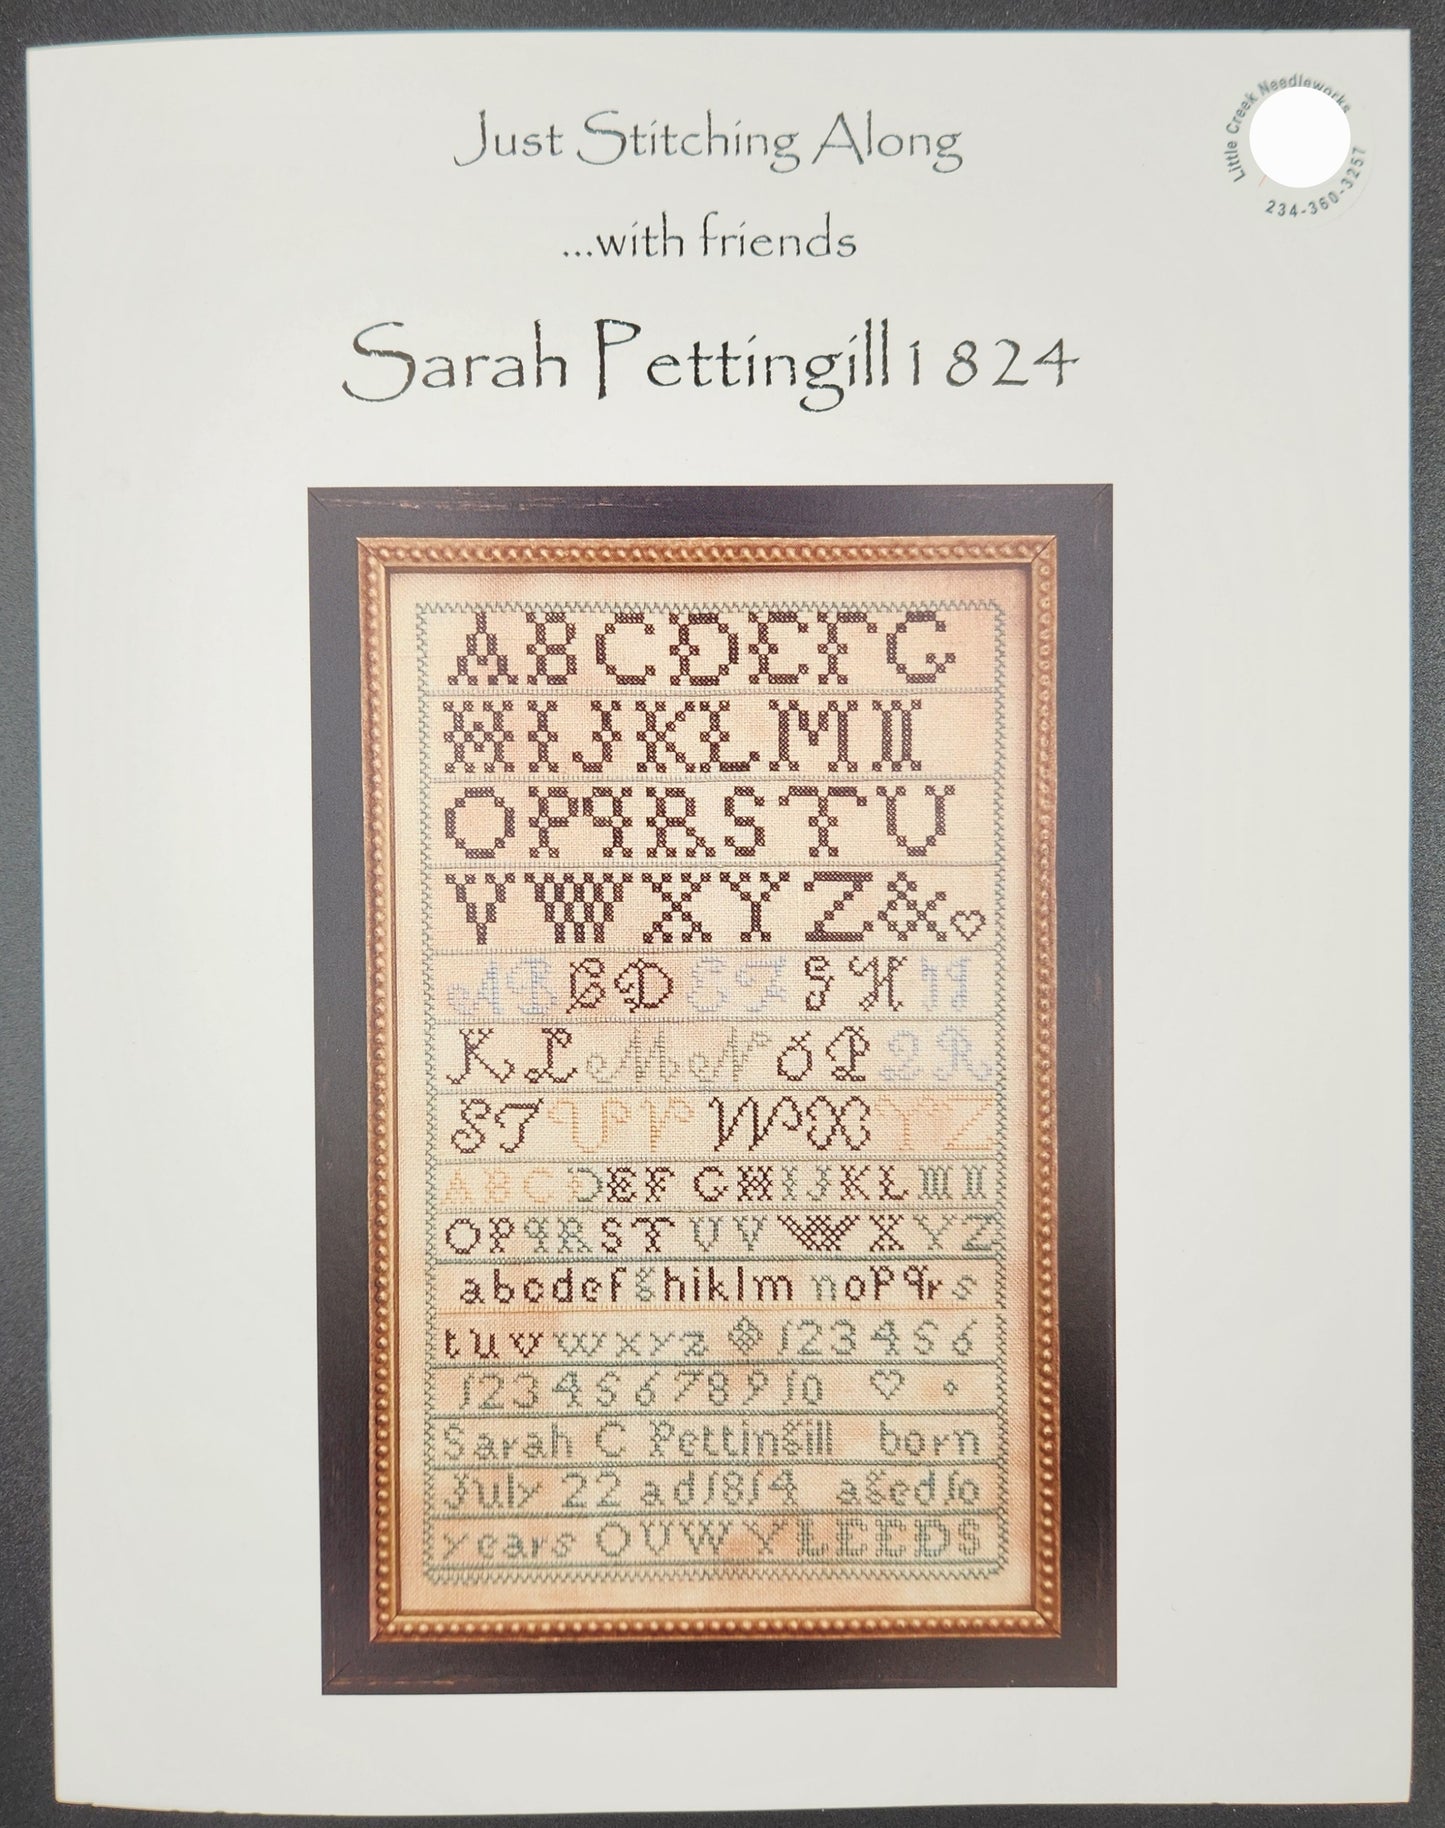 Just Stitching Along
...with friends
Sarah Pettingill 1824
Little Creek Needleworks
234-360-3257
ABCDEFG
HIJKLMN
OPQRSTU
VWXYZ&
ABCDEFGHIJ
KLMNOPQR
STUVWXYZ
ABCDEFGHIJKLMN
OPQRSTUVWXYZ
abcdefghiklmnopqrs
tuvwxyz 123456
12345678910
Sarah C Pettingill born
July 22 ad 1814 aged 10
years OUWYLEEDS